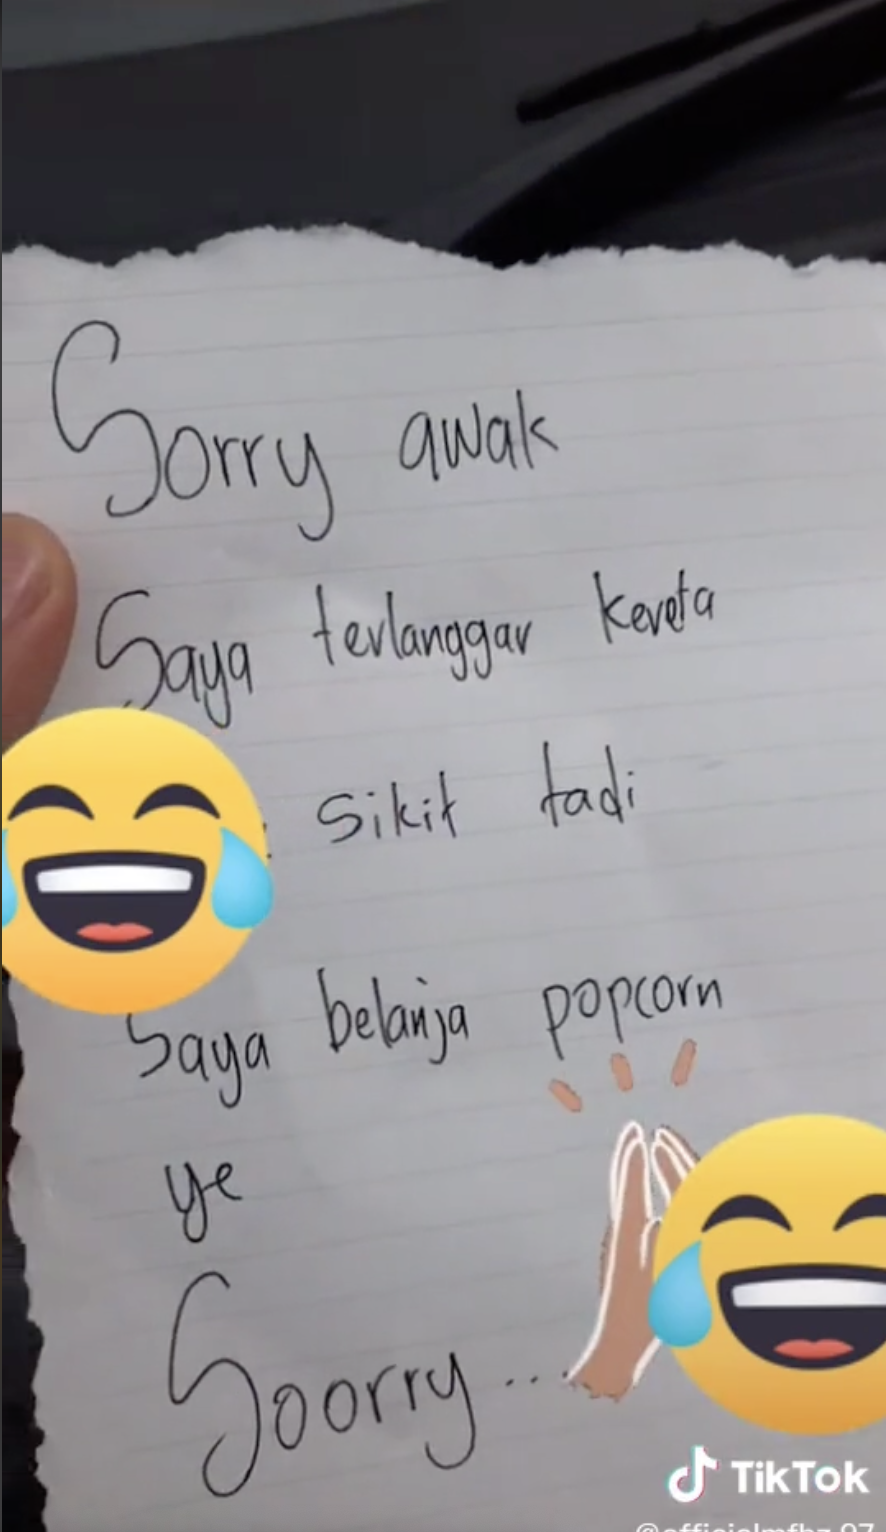 Sorry awak
Saya terlanggar kereta
sikit tadi
Saya belanja popcorn
ye
Soorry...
TikTok